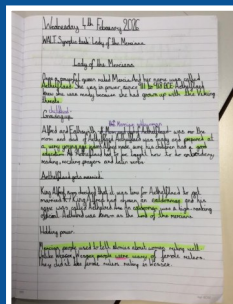 Wednesday 4th February 2026
WALT: Lady of the Mercians
Lady of the Mercians
Once a powerful queen ruled Mercia. And her name was called
Æthelflæd. She was in power since 911 to 918
she was ready because she had grown up with the Viking
threats.
Growing up
Alfred and Ealhswith of Mercia and Æthelflæd was the
and prepared at
a very young age. Alfred made sure his children had a good
education. As Æthelflæd had to be taught how to do embroidery,
reading, reciting prayers and latin verbs.
Æthelflæd gets married.
King Alfred decided that it was time for Æthelflæd to get
married. King Alfred had chosen an ealdorman and his
name was called Aethelred. An ealdorman was a high-ranking
official. Aethelred was known as the Lord of the mercians.
Holding power.
Mercian people used to talk stories about women ruling well
unlike Wessex, Wessex people were wary of female rulers.
They didn't like female rulers ruling in Wessex.